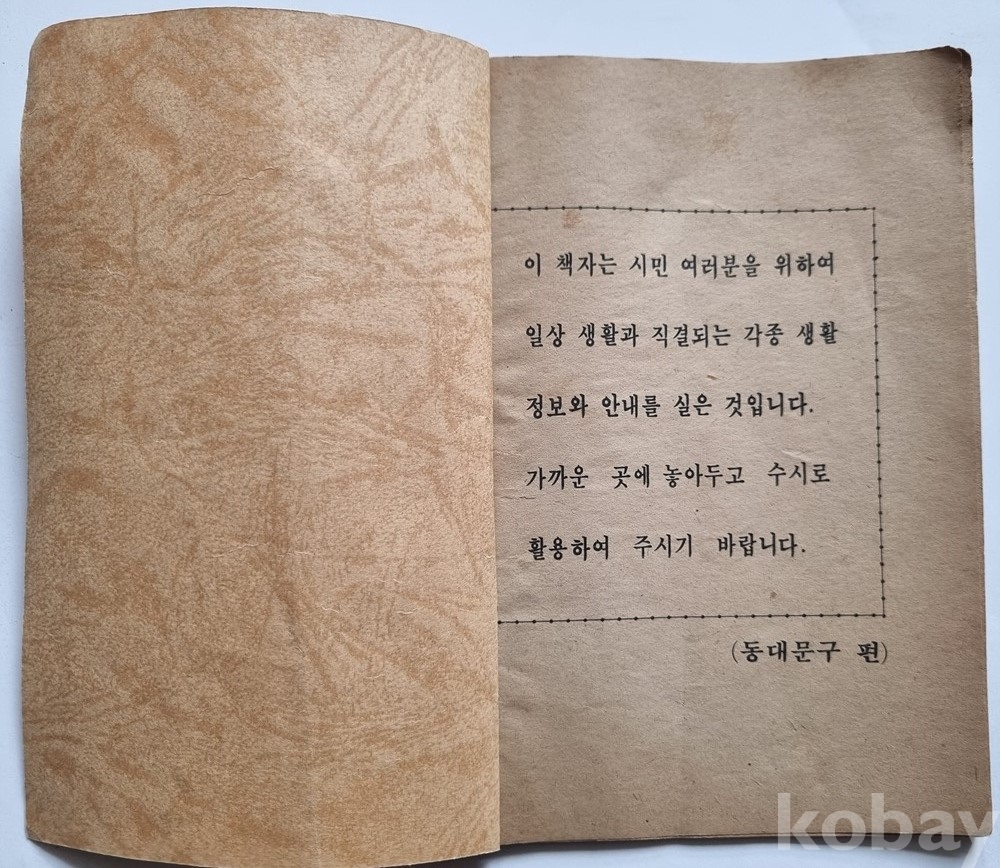 이 책자는 시민 여러분을 위하여
일상 생활과 직결되는 각종 생활
정보와 안내를 실은 것입니다.
가까운 곳에 놓아두고 수시로
활용하여 주시기 바랍니다.
(동대문구 편)
kobay